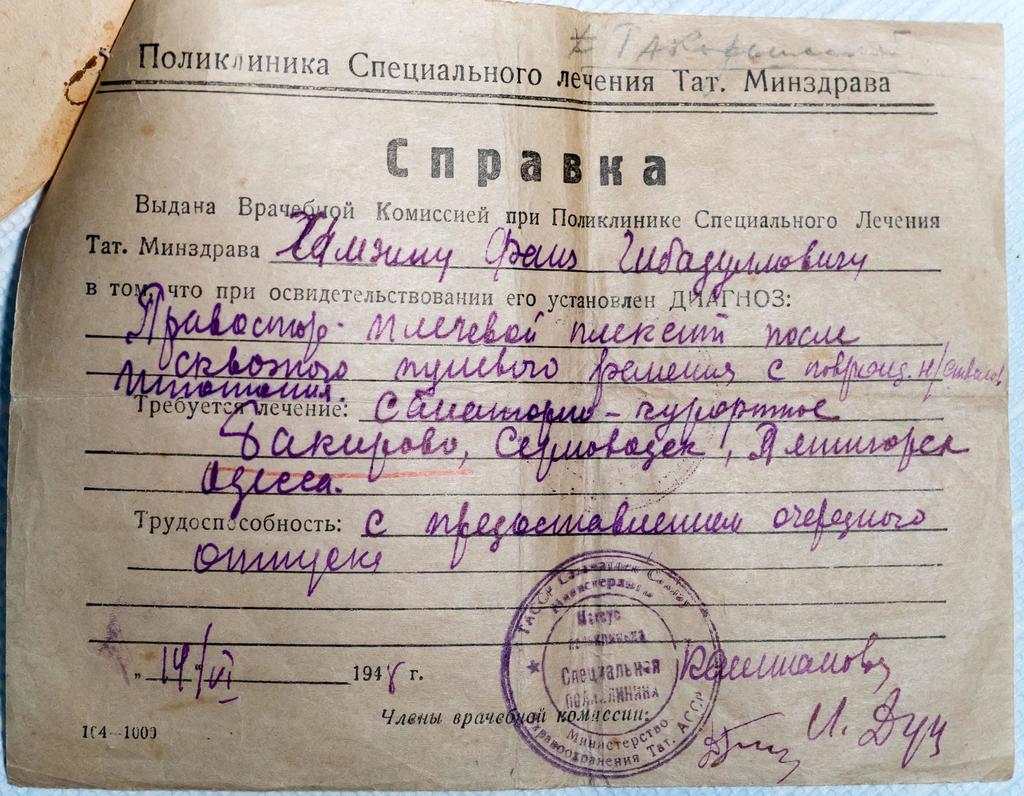 Поликлиника Специального лечения Тат. Минздрава
Справка
Выдана Врачебной Комиссией при Поликлинике Специального Лечения
Тат. Минздрава Хамзину Фаиз Гибадулловичу
в том, что при освидетельствовании его установлен ДИАГНОЗ:
Правостор. плечевой плексит после
сквозного пулевого ранения с поврежд. н/стволов
Требуется лечение: санаторно-курортное
Бакирово, Серноводск, Пятигорск
Одесса.
Трудоспособность: с предоставлением очередного
отпуска
„14/VI 1948 г.
Члены врачебной комиссии:
164—1000
Махсус
поликлиника
Специальная
поликлиника
Министерство
здравоохранения Тат. АССР